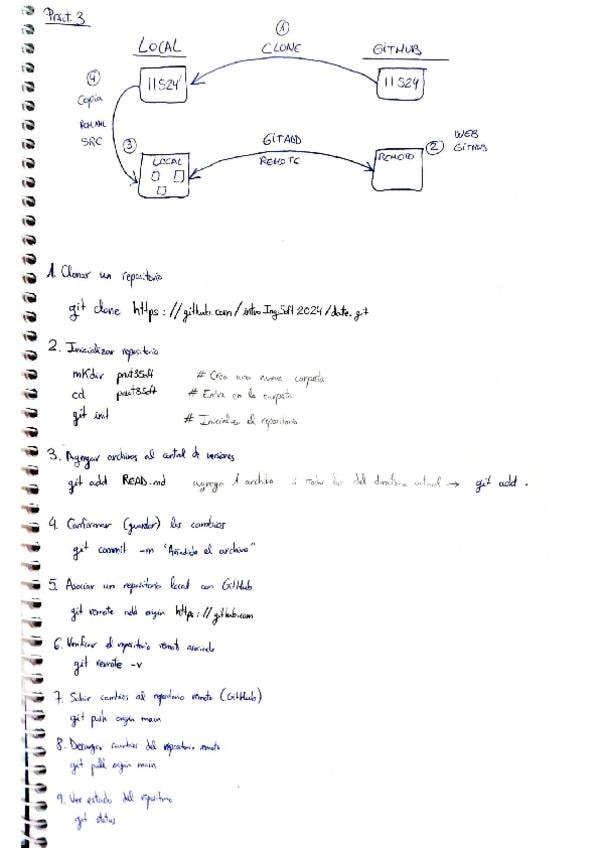 Pract. 3
①
LOCAL
CLONE
GITHUB
④
IIS24
IIS24
Copia
MANUAL
SRC
③
GIT ADD
REMOTE
LOCAL
REMOTO
②
WEB
GITHUB
1. Clonar un repositorio
git clone https://github.com/introIngSoft2024/date.git
2. Inicializar repositorio
mkdir pract3Soft # Crea una nueva carpeta
cd pract3Soft # Entra en la carpeta
git init # Inicializa el repositorio
3. Agregar archivos al control de versiones
git add READ.md agrega 1 archivo todos los del directorio actual → git add .
4. Confirmar (guardar) los cambios
git commit -m "Añadido el archivo"
5. Asociar un repositorio local con GitHub
git remote add origin https://github.com
6. Verificar el repositorio remoto asociado
git remote -v
7. Subir cambios al repositorio remoto (GitHub)
git push origin main
8. Descargar cambios del repositorio remoto
git pull origin main
9. Ver estado del repositorio
git status